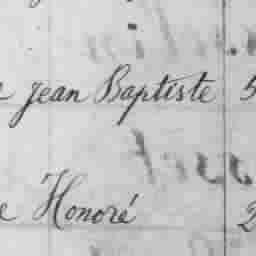 Jean Baptiste 5
e Honoré 2